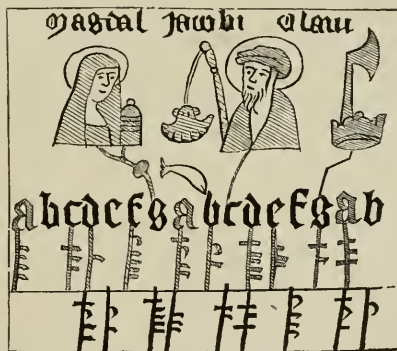 Magdal Jacobi Olaui
abcdefgabcdefgab